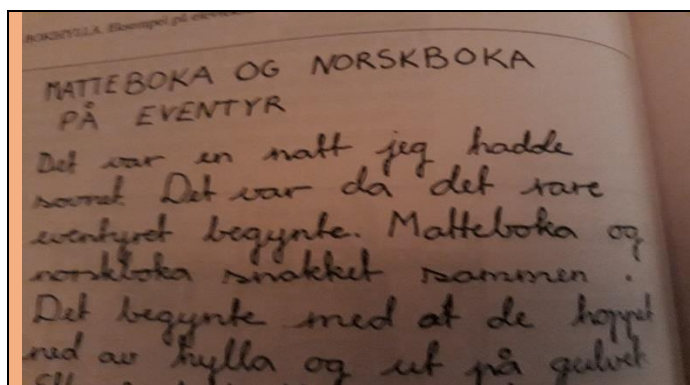 BOKHYLLA. Eksempel på
MATTEBOKA OG NORSKBOKA
PÅ EVENTYR
Det var en natt jeg hadde
sovnet. Det var da det rare
eventyret begynte. Matteboka og
norskboka snakket sammen.
Det begynte med at de hoppet
ned av hylla og ut på gulvet